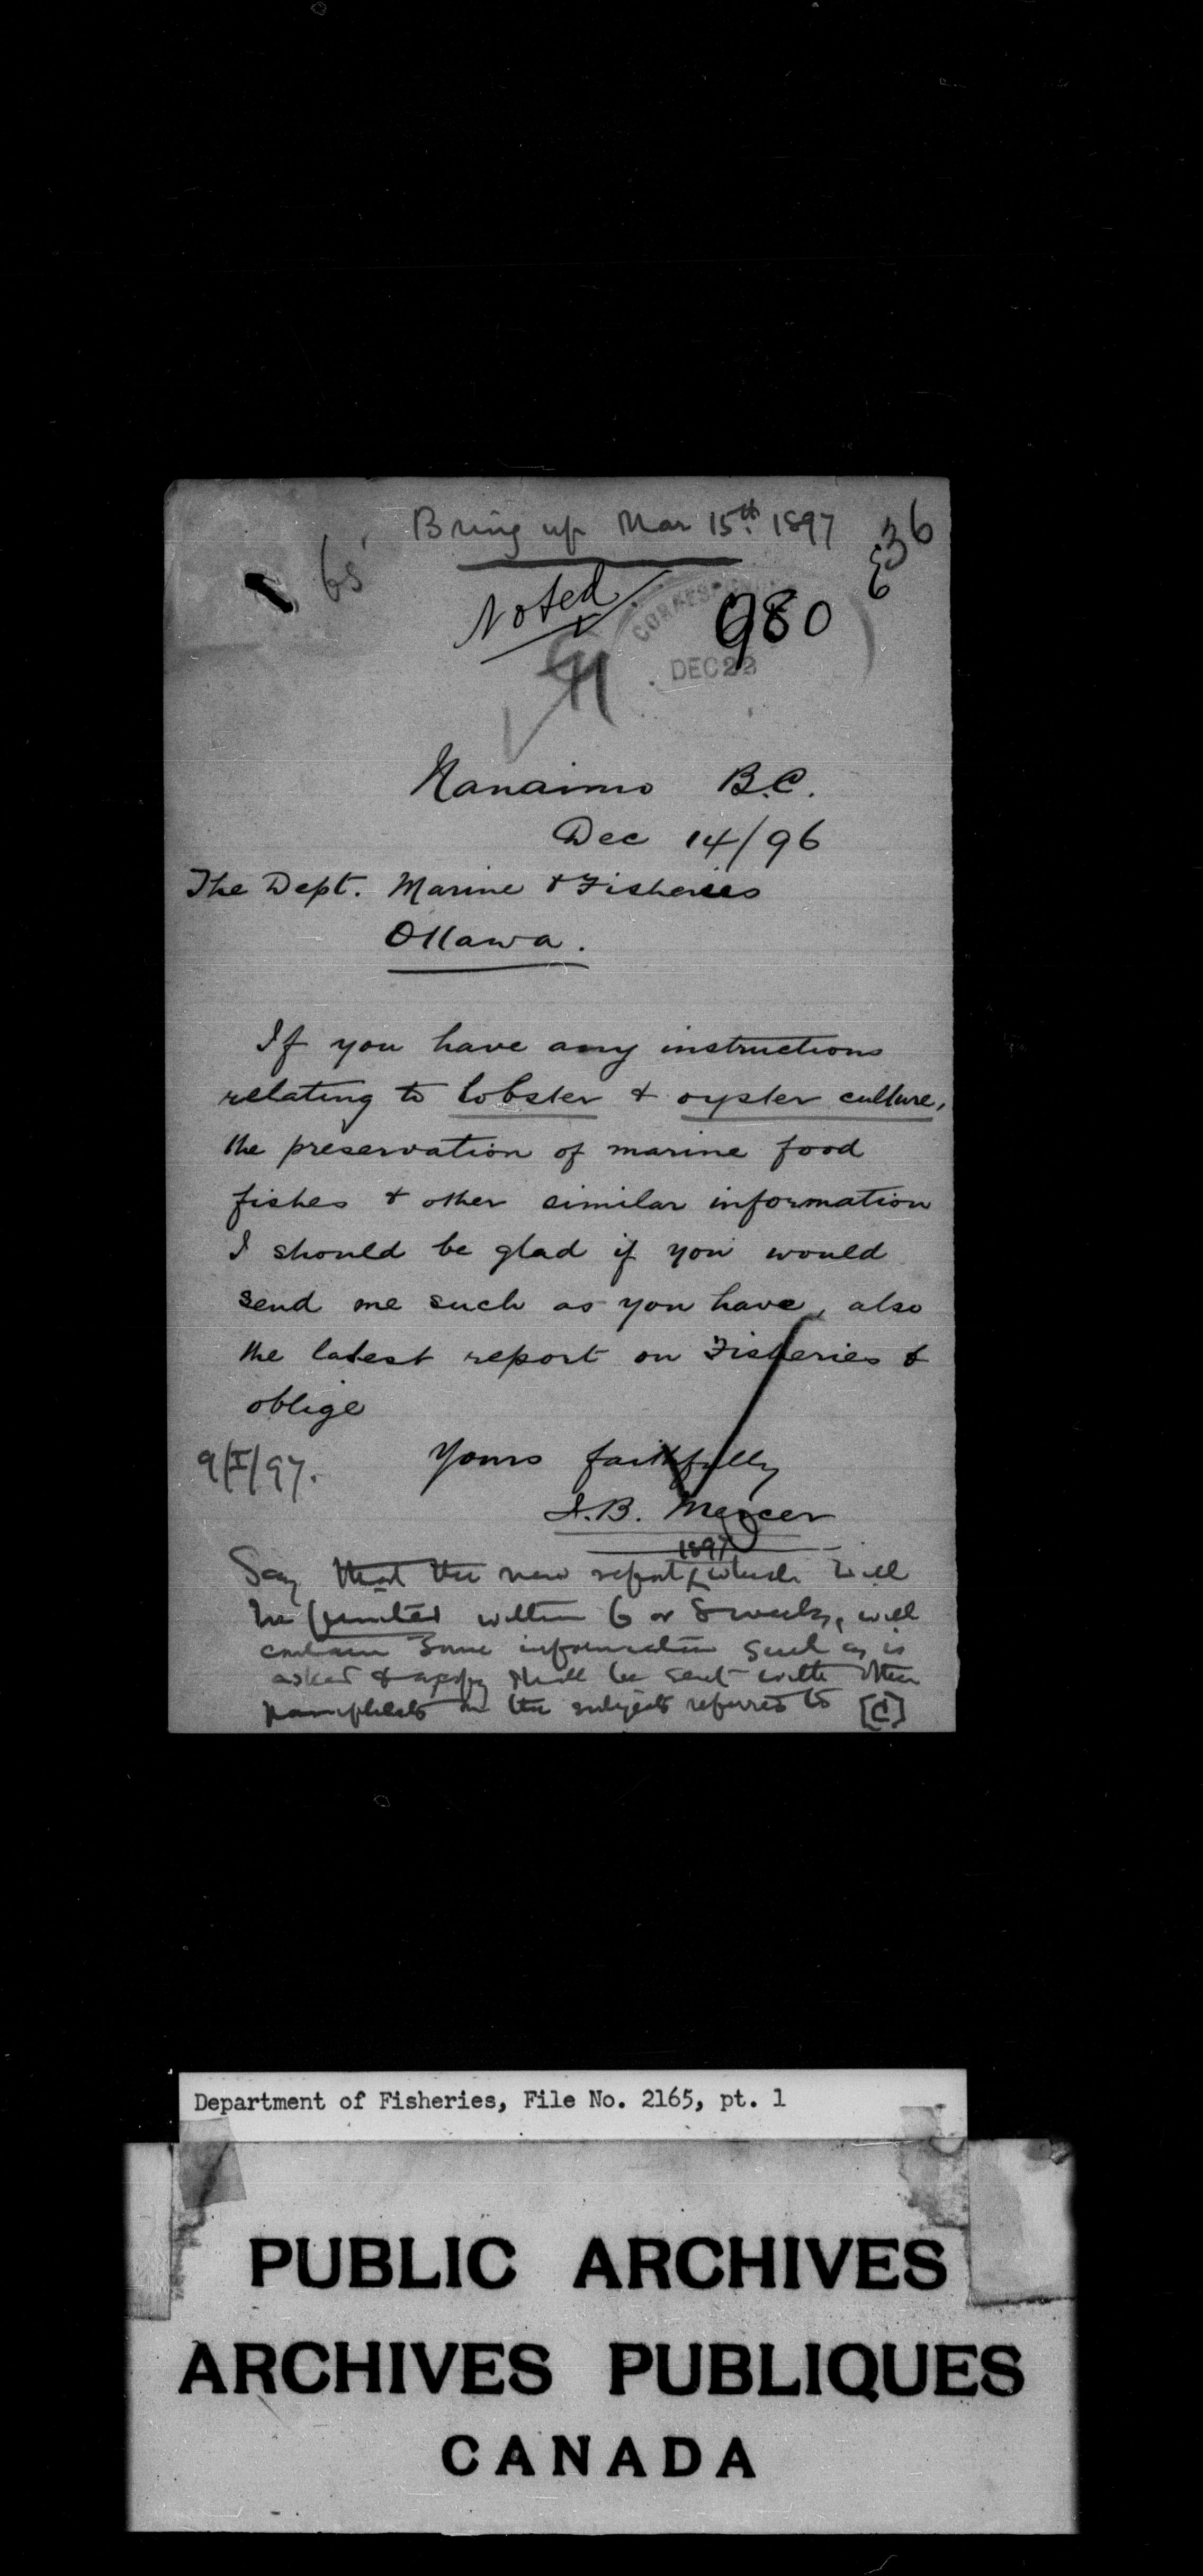 Bring up Mar 15th. 1897
65
636
Noted
CORRESPOND
980
DEC 22
Nanaimo B.C.
Dec 14/96
The Dept. Marine & Fisheries
Ottawa.
If you have any instructions
relating to lobster & oyster culture,
the preservation of marine food
fishes & other similar information
I should be glad if you would
send me such as you have, also
the latest report on Fisheries &
oblige
9/I/97.
Yours faithfully
I.B. Mercer
1897
Say that the new report which will
be printed within 6 or 8 weeks, will
contain some information such as is
asked & a copy shall be sent with other
pamphlets on the subjects referred to
Department of Fisheries, File No. 2165, pt. 1
PUBLIC ARCHIVES
ARCHIVES PUBLIQUES
CANADA